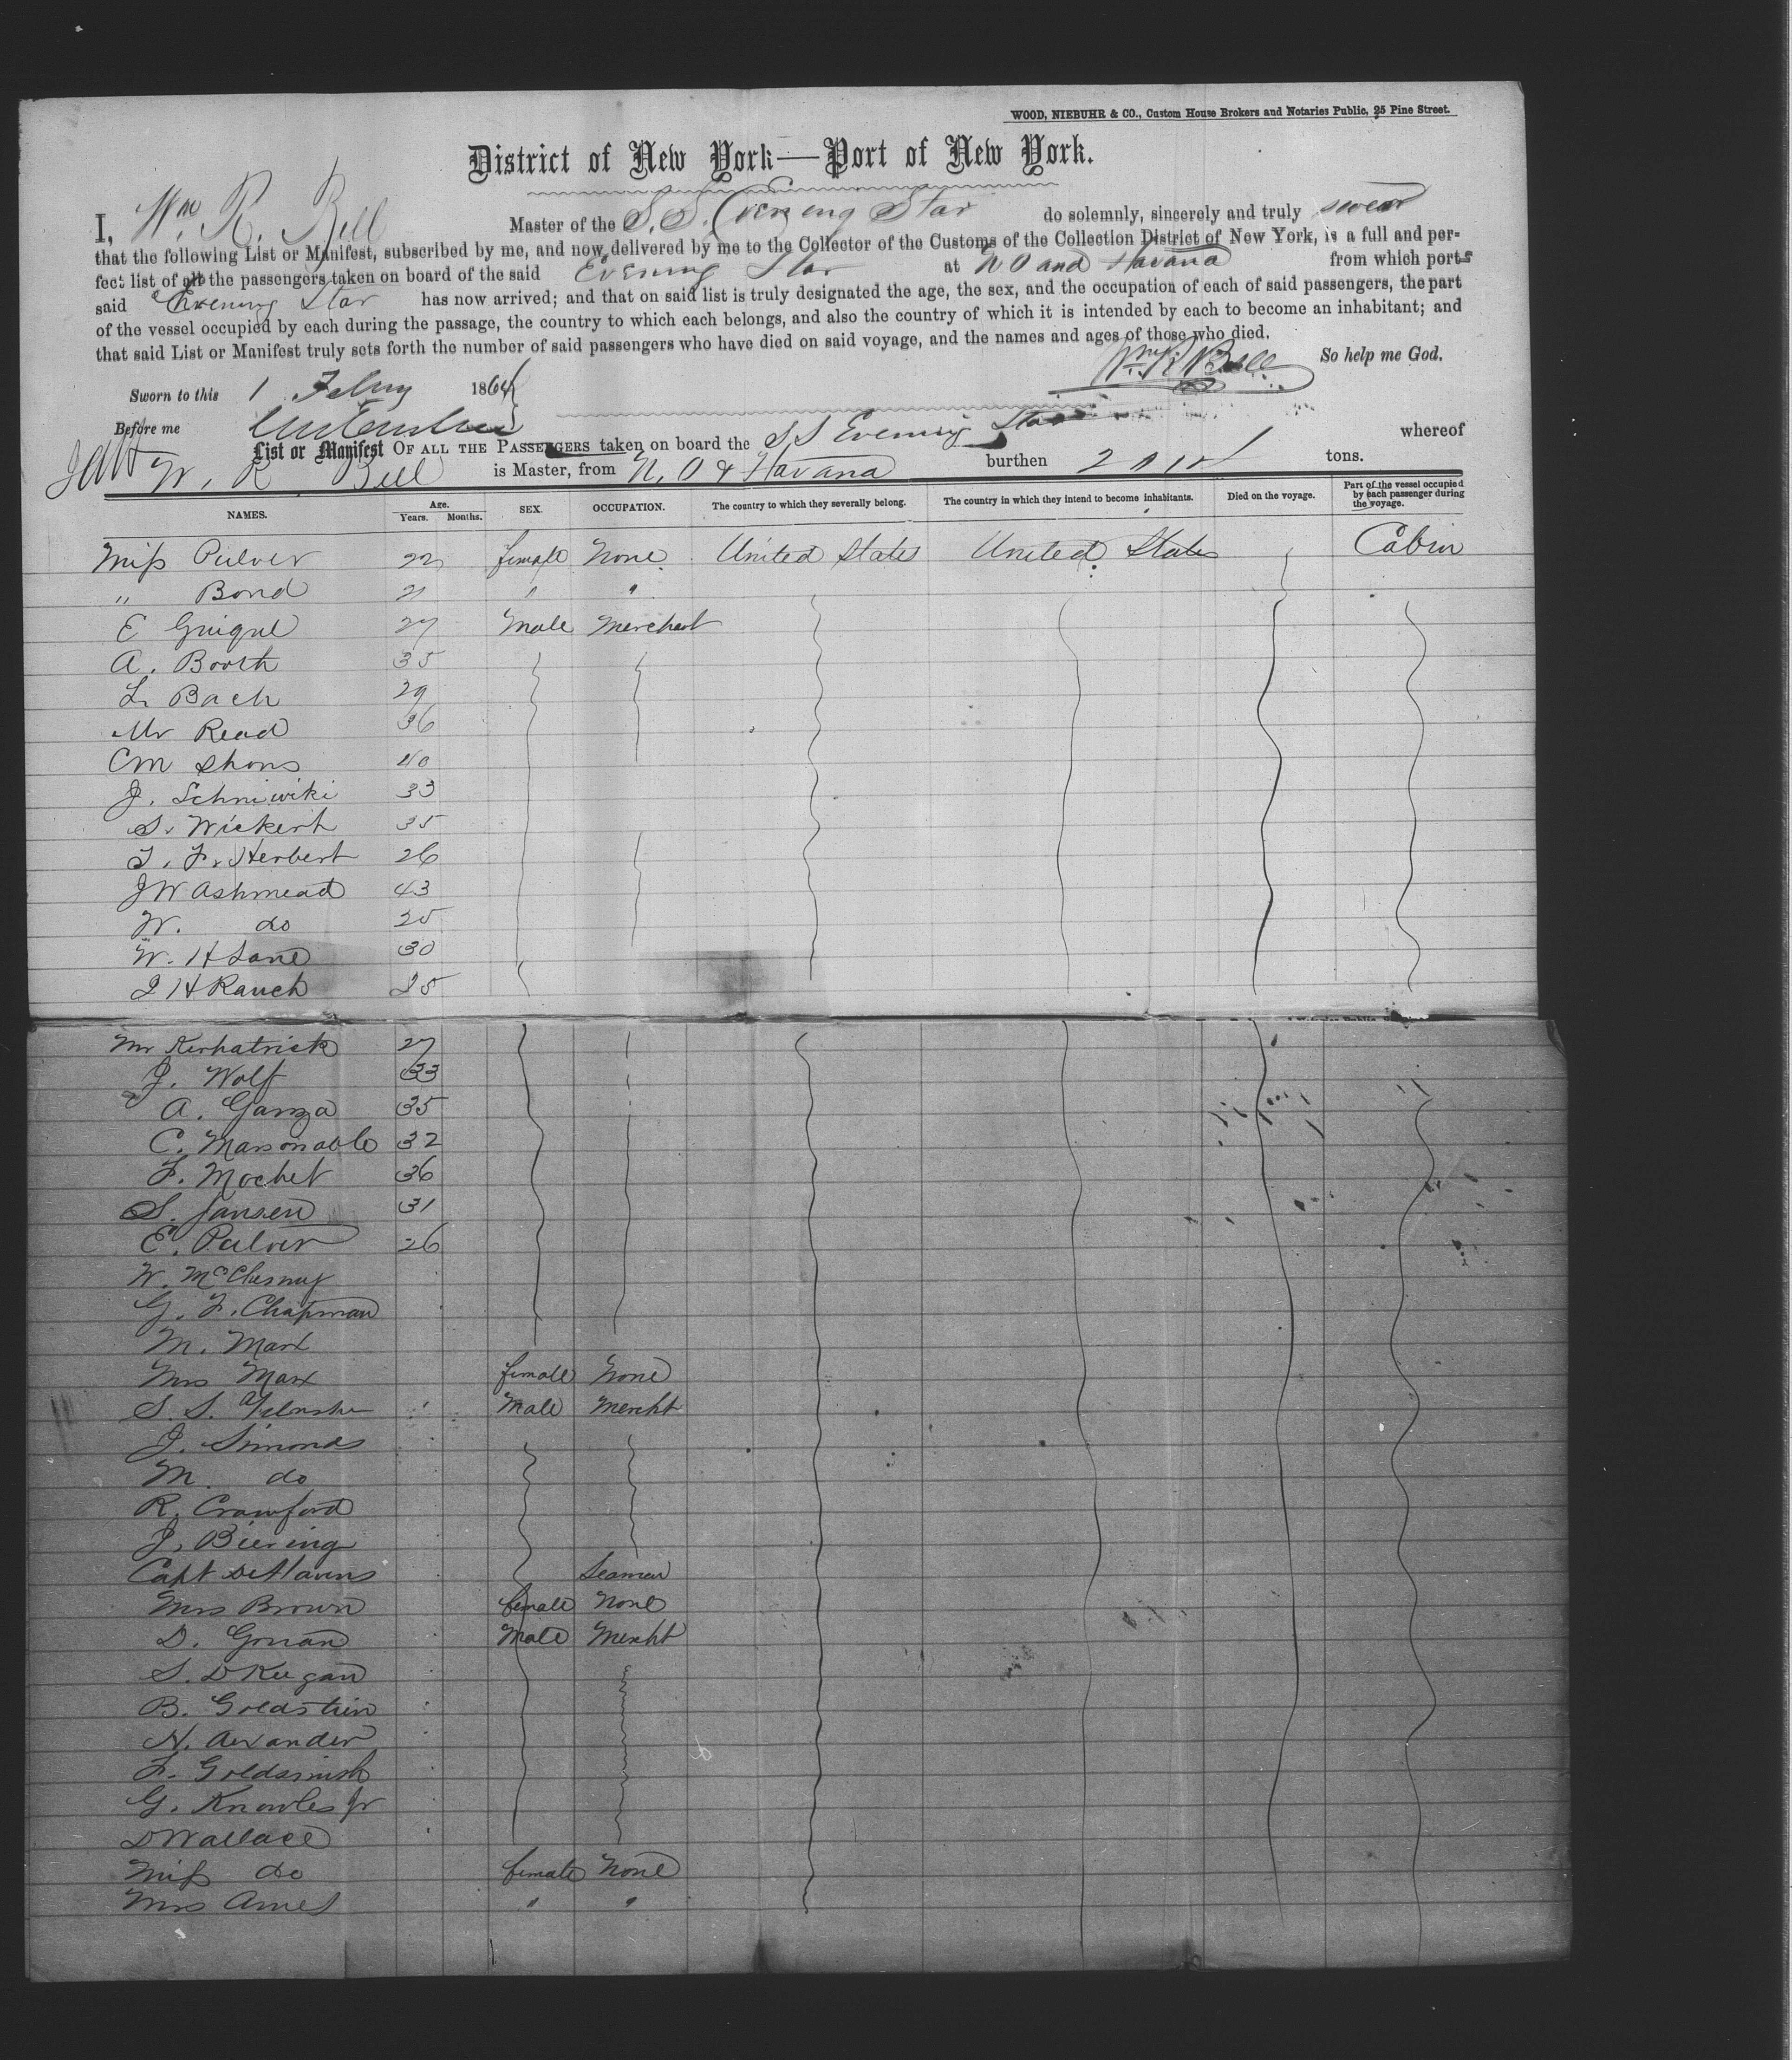 WOOD, NIEBUHR & CO., Custom House Brokers and Notaries Public, 25 Pine Street.
District of New York—Port of New York.
I, Wm R. Bell Master of the S.S. Evening Star do solemnly, sincerely and truly swear
that the following List or Manifest, subscribed by me, and now delivered by me to the Collector of the Customs of the Collection District of New York, is a full and per-
fect list of all the passengers taken on board of the said Evening Star at N O and Havana from which ports
said Evening Star has now arrived; and that on said list is truly designated the age, the sex, and the occupation of each of said passengers, the part
of the vessel occupied by each during the passage, the country to which each belongs, and also the country of which it is intended by each to become an inhabitant; and
that said List or Manifest truly sets forth the number of said passengers who have died on said voyage, and the names and ages of those who died.
Wm R. Bell So help me God.
Sworn to this 1 Feby 1864
Before me
List or Manifest OF ALL THE PASSENGERS taken on board the S S Evening Star whereof
W. R Bell is Master, from N. O & Havana burthen tons.
NAMES. Age. Years. Months. SEX. OCCUPATION. The country to which they severally belong. The country in which they intend to become inhabitants. Died on the voyage. Part of the vessel occupied by each passenger during the voyage.
Miss Pulver 22 female None United States United States Cabin
" Bond 21 " "
E Guigul 27 Male Merchant
A. Booth 35
L. Bach 29
Mr Read 36
C M Shons 40
J. Schniwiki 33
S. Wickert 35
T. F. Herbert 26
J W Ashmead 43
W. do 25
W. H Lane 30
J H Rauch 25
Mr Kirkpatrick 27
J. Wolf 33
A. Garza 35
C. 32
F. Mochet 36
S. Jansen 31
E. Pulver 26
W. McChesney
G. F. Chapman
M. Marx
Mrs Marx female None
S. S. Male Mercht
J. Simonds
M. do
R. Crawford
J. Biering
Capt DeHavens Seaman
Mrs Brown female None
D. Gouan Male Mercht
S. D Keegan
B. Goldstein
H. Alexander
F. Goldsmith
G. Knowles Jr
D Wallace
Miss do female None
Mrs Ames " "